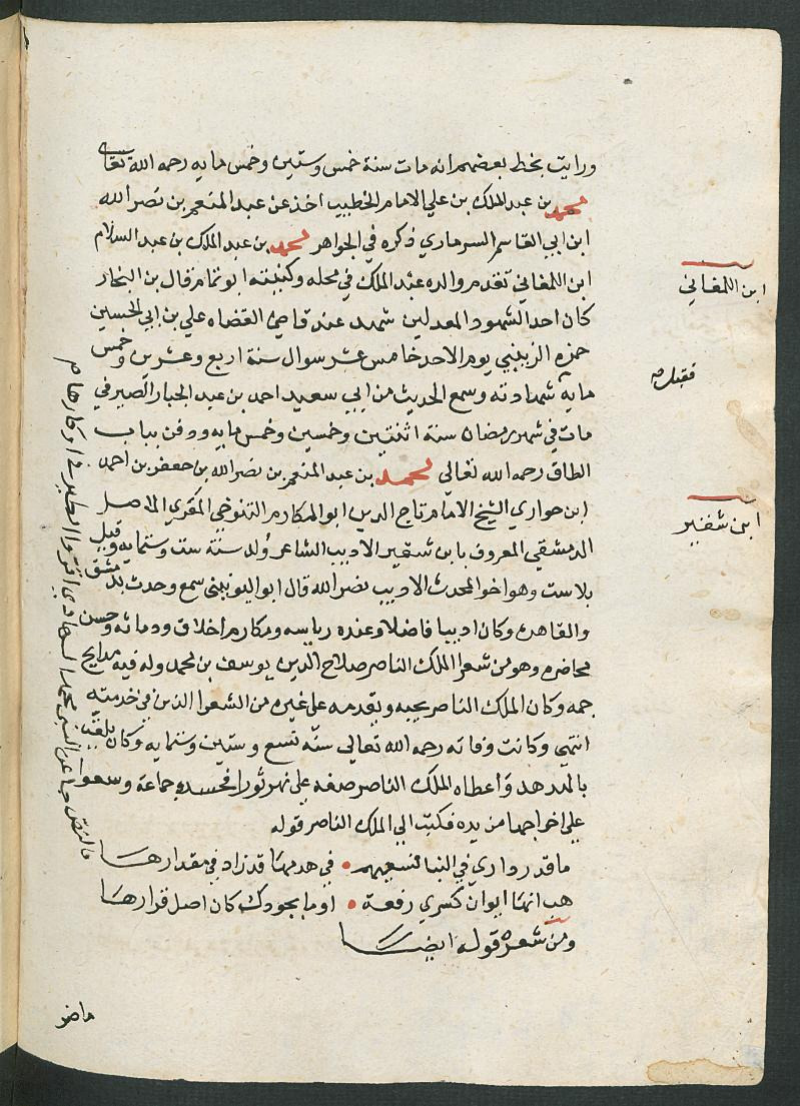 ورايت بخط بعضهم انه مات سنة خمس وستين وخمس مايه رحمه الله تعالى
محمد بن عبد الملك بن علي الامام الخطيب اخذ عن عبد المنعم بن نصر الله
ابن ابي القاسم السرماري ذكره في الجواهر محمد بن عبد الملك بن عبد السلام
ابن اللمغاني تقدم والده عبد الملك في محله وكنيته ابو تمام قال بن النجار
كان احد الشهود المعدلين شهد عند قاضي القضاه علي بن ابي الحسين
حمزه الزينبي يوم الاحد خامس عشر سوال سنة اربع وعشرين وخمس
مايه شهادته وسمع الحديث من ابي سعيد احمد بن عبد الجبار الصيرفي
مات في شهر رمضان سنة اثنتين وخمسين وخمس مايه ودفن بباب
الطاق رحمه الله تعالي محمد بن عبد المنعم بن نصر الله بن جعفر بن احمد
ابن حواري الشيخ الامام تاج الدين ابو المكارم التنوخي المقري الاصل
الدمشقي المعروف بابن شقير الاديب الشاعر ولد سنة ست وستمايه وقيل
بلاست وهو اخو المحدث الاديب نصر الله قال اليونيني سمع وحدث بدمشق
والقاهرة وكان اديبا فاضلا وعنده رياسه ومكارم اخلاق ودماثه وحسن
محاضره وهو من شعرا الملك الناصر صلاح الدين يوسف بن محمد وله فيه مدايح
جمه وكان الملك الناصر يحبه ويقدمه على غيره من الشعرا الذين في خدمته
انتهي وكانت وفاته رحمه الله تعالي سنة تسع وستين وستمايه وكان يلقب
بالهدهد واعطاه الملك الناصر ضيعه على نهر ثورا فحسده جماعة وسعوا
علي اخراجها من يده فكتب الي الملك الناصر قوله
ما قدر داري في البنا فسعيهم • في هدمها قد زاد في مقدارها
هب انها ايوان كسري رفعة • اوما بجودك كان اصل قرارها
ومن شعره قوله ايضا
ماضر
ابن اللمغاني
فقبل
ابن شقير